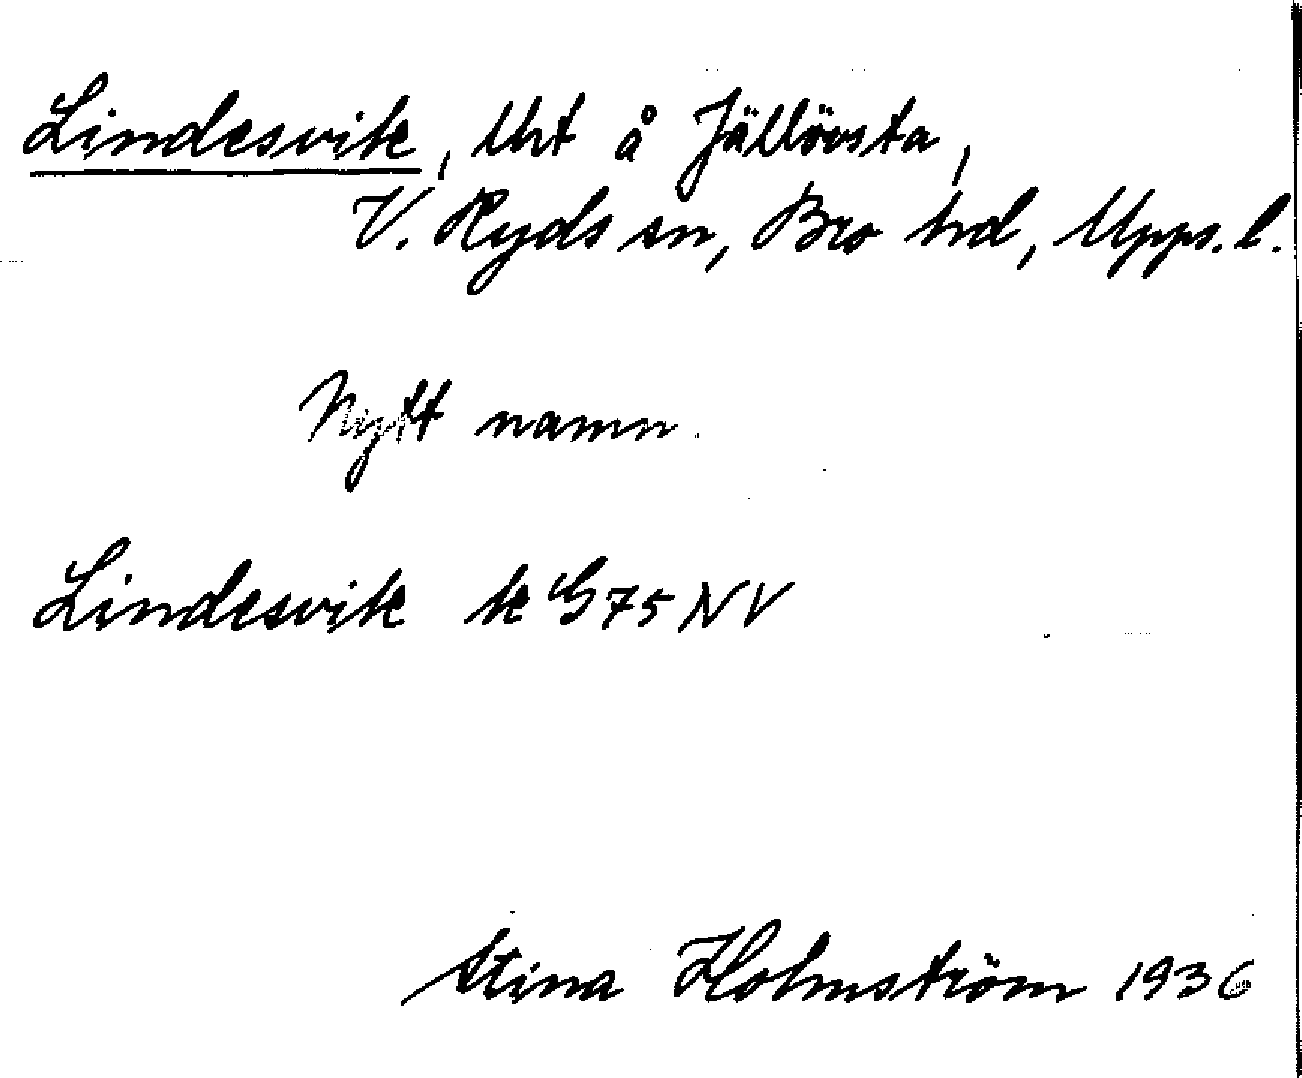 Lindesvik, lht å Jällövsta,
V. Ryds sn, Bro hd, Upps. l.
Nytt namn.
Lindesvik k G 75 NV
Stina Holmström 1936